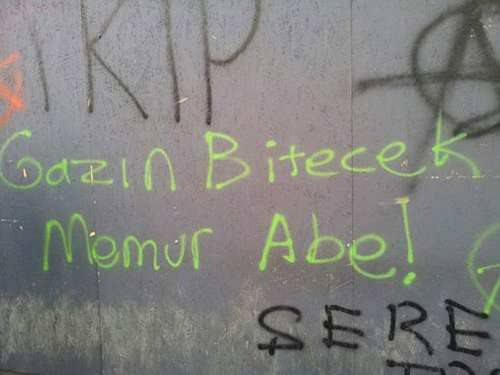 KIP
Gazın Bitecek
Memur Abe!
SERE